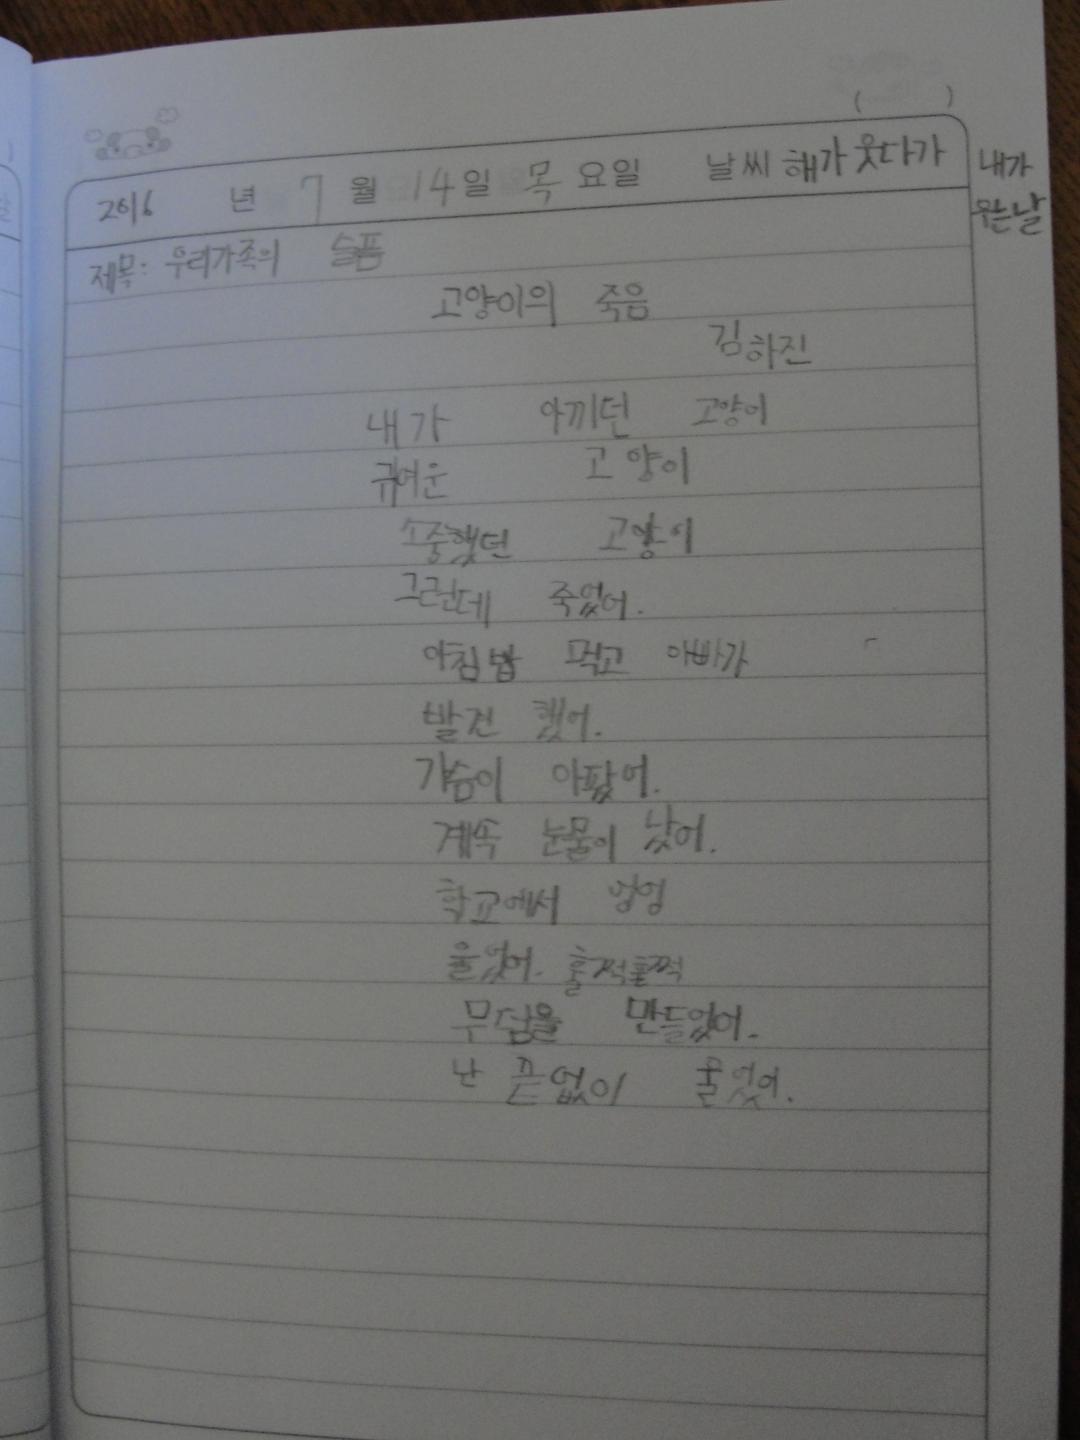 2016 년 7 월 14 일 목 요일 날씨 해가 웃다가 내가
우는날
제목: 우리가족의 슬픔
고양이의 죽음
김하진
내가 아끼던 고양이
귀여운 고양이
소중했던 고양이
그런데 죽었어.
아침밥 먹고 아빠가
발견 했어.
가슴이 아팠어.
계속 눈물이 났어.
학교에서 엉엉
울었어. 훌쩍훌쩍
무덤을 만들었어.
난 끝없이 울었어.